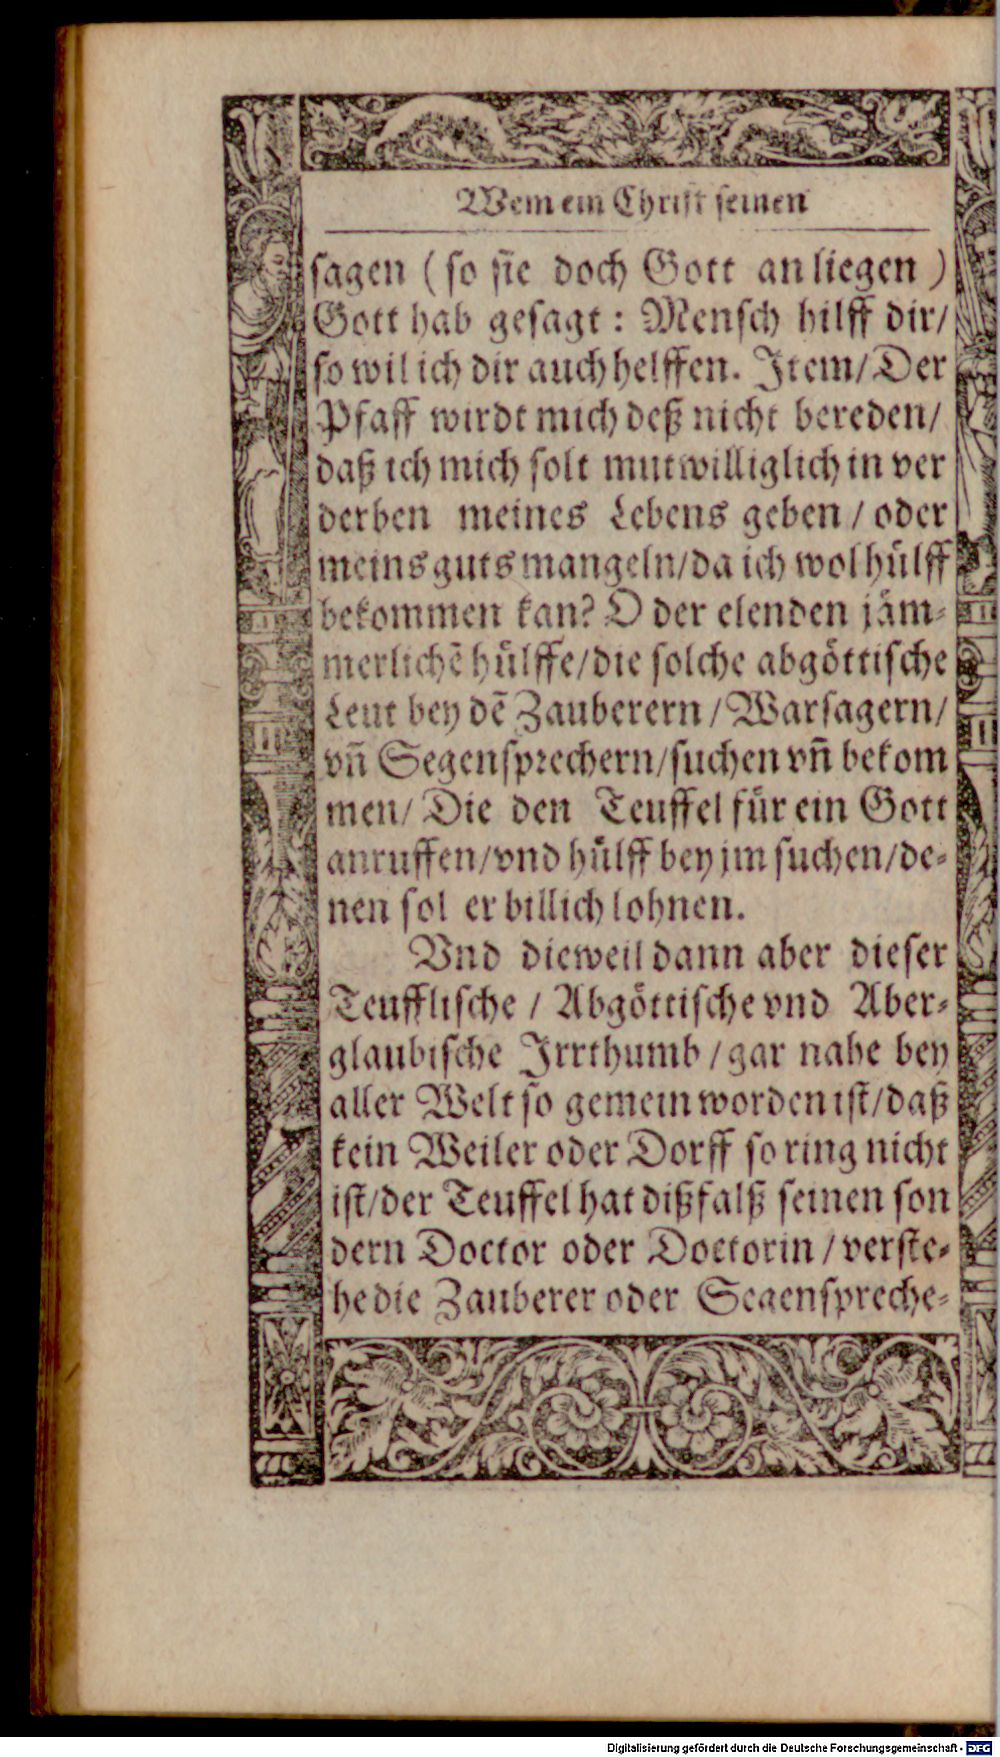 Wem ein Christ seinen
sagen ( so sie doch Gott anliegen )
Gott hab gesagt : Mensch hilff dir/
so wil ich dir auch helffen. Item/ Der
Pfaff wirdt mich deß nicht bereden/
daß ich mich solt mutwilliglich in ver
derben meines Lebens geben / oder
meins guts mangeln/da ich wol hülff
bekommen kan? O der elenden jäm-
merlichẽ hülffe/die solche abgöttische
Leut bey dẽ Zauberern / Warsagern/
vñ Segensprechern/suchen vñ bekom
men/ Die den Teuffel für ein Gott
anruffen/vnd hülff bey jm suchen/de-
nen sol er billich lohnen.
Vnd dieweil dann aber dieser
Teufflische / Abgöttische vnd Aber-
glaubische Irrthumb / gar nahe bey
aller Welt so gemein worden ist/daß
kein Weiler oder Dorff so ring nicht
ist/der Teuffel hat dißfalß seinen son
dern Doctor oder Doctorin / verste-
he die Zauberer oder Segenspreche-
Digitalisierung gefördert durch die Deutsche Forschungsgemeinschaft - DFG